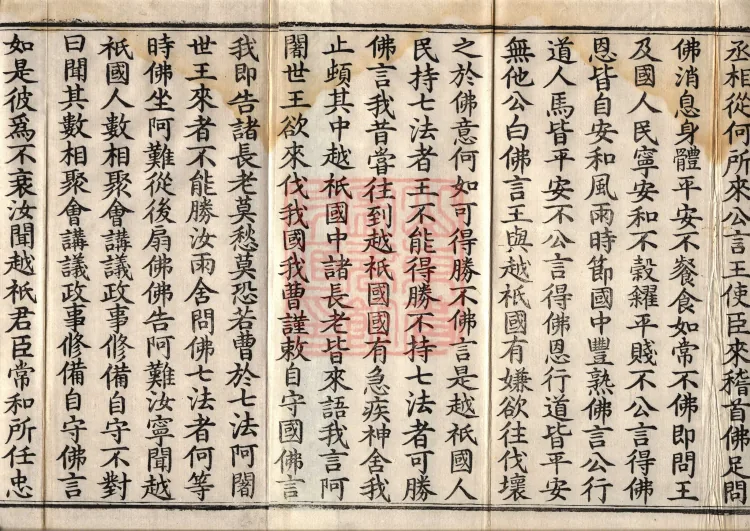 丞相從何所來公言王使臣來稽首佛足問
佛消息身體平安不餐食如常不佛即問王
及國人民寧安和不穀糴平賤不公言得佛
恩皆自安和風雨時節國中豐熟佛言公行
道人馬皆平安不公言得佛恩行道皆平安
無他公白佛言王與越祇國有嫌欲往伐壞
之於佛意何如可得勝不佛言是越祇國人
民持七法者王不能得勝不持七法者可勝
佛言我昔嘗往到越祇國國有急疾神舍我
止頓其中越祇國中諸長老皆來語我言阿
闍世王欲來伐我國我曹謹敕自守國佛言
我即告諸長老莫愁莫恐若曹於七法阿闍
世王來者不能勝汝雨舍問佛七法者何等
時佛坐阿難從後扇佛佛告阿難汝寧聞越
祇國人數相聚會講議政事修備自守不對
曰聞其數相聚會講議政事修備自守佛言
如是彼為不衰汝聞越祇君臣常和所任忠